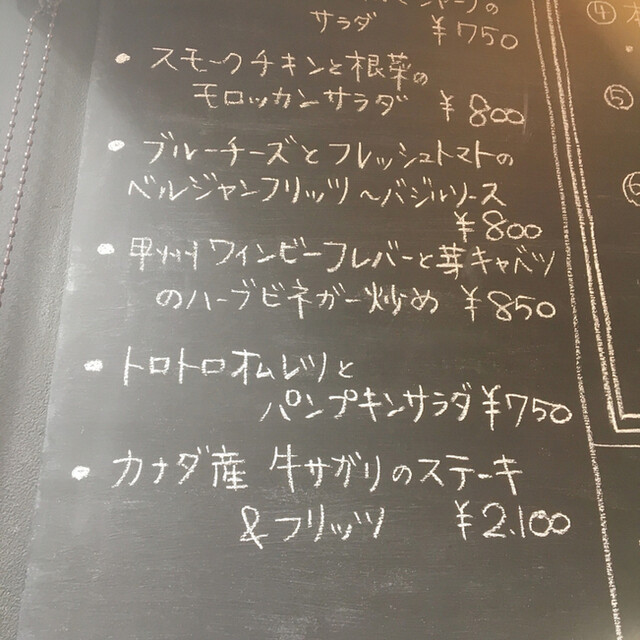 サラダ ¥750
• スモークチキンと根菜の
モロッカンサラダ ¥800
• ブルーチーズとフレッシュトマトの
ベルジャンフリッツ〜バジルソース
¥800
• 甲州ワインビーフレバーと芽キャベツ
のハーブビネガー炒め ¥850
• トロトロオムレツと
パンプキンサラダ ¥750
• カナダ産 牛サガリのステーキ
&フリッツ ¥2,100
④
⑤